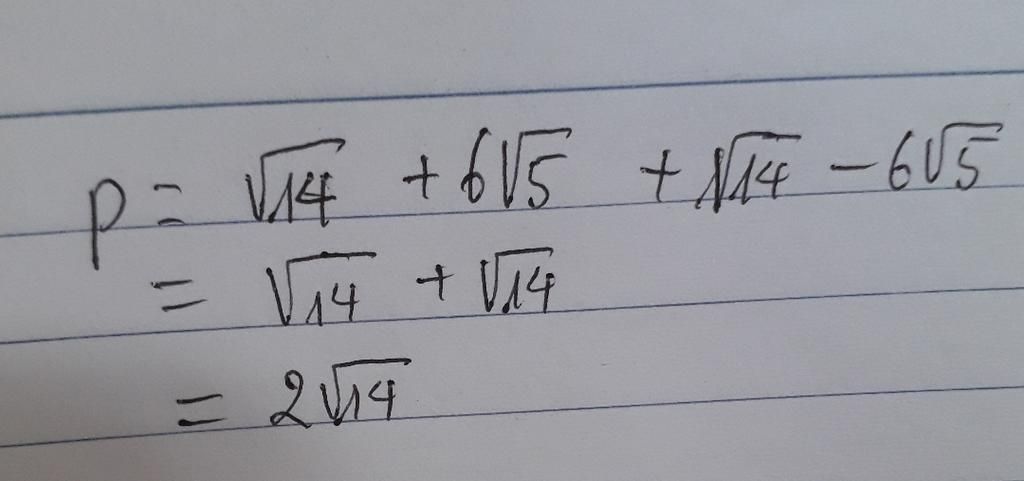 p = √14 + 6√5 + √14 − 6√5
= √14 + √14
= 2√14